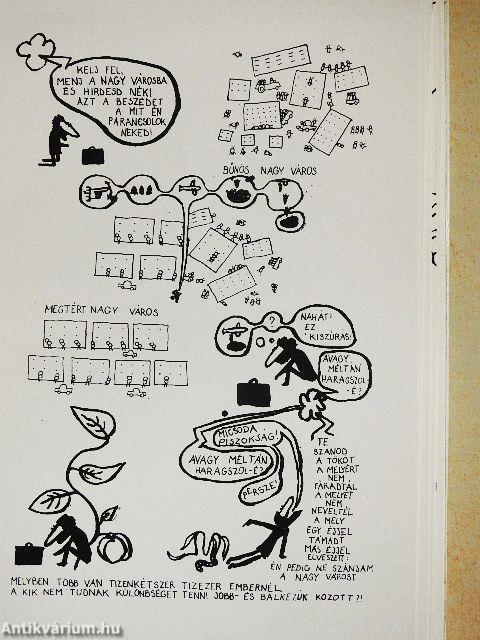 KELJ FEL,
MENJ A NAGY VÁROSBA
ÉS HIRDESD NÉKI
AZT A BESZÉDET
A MIT ÉN
PARANCSOLOK
NEKED!
BŰNÖS NAGY VÁROS
MEGTÉRT NAGY VÁROS
?
NAHÁT!
EZ
KISZÚRÁS!
AVAGY
MÉLTÁN
HARAGSZOL-
É?
MICSODA
PISZOKSÁG!
AVAGY MÉLTÁN
HARAGSZOL-É?
PERSZE!
TE
SZÁNOD
A TÖKÖT
A MELYÉRT
NEM
FÁRADTÁL
A MELYET
NEM
NEVELTÉL
A MELY
EGY ÉJJEL
TÁMADT
MÁS ÉJJEL
ELVESZETT:
ÉN PEDIG NE SZÁNJAM
A NAGY VÁROST
MELYBEN TÖBB VAN TIZENKÉTSZER TIZEZER EMBERNÉL,
A KIK NEM TUDNAK KÜLÖNBSÉGET TENNI JOBB- ÉS BALKEZÜK KÖZÖTT?!
Antikvárium.hu